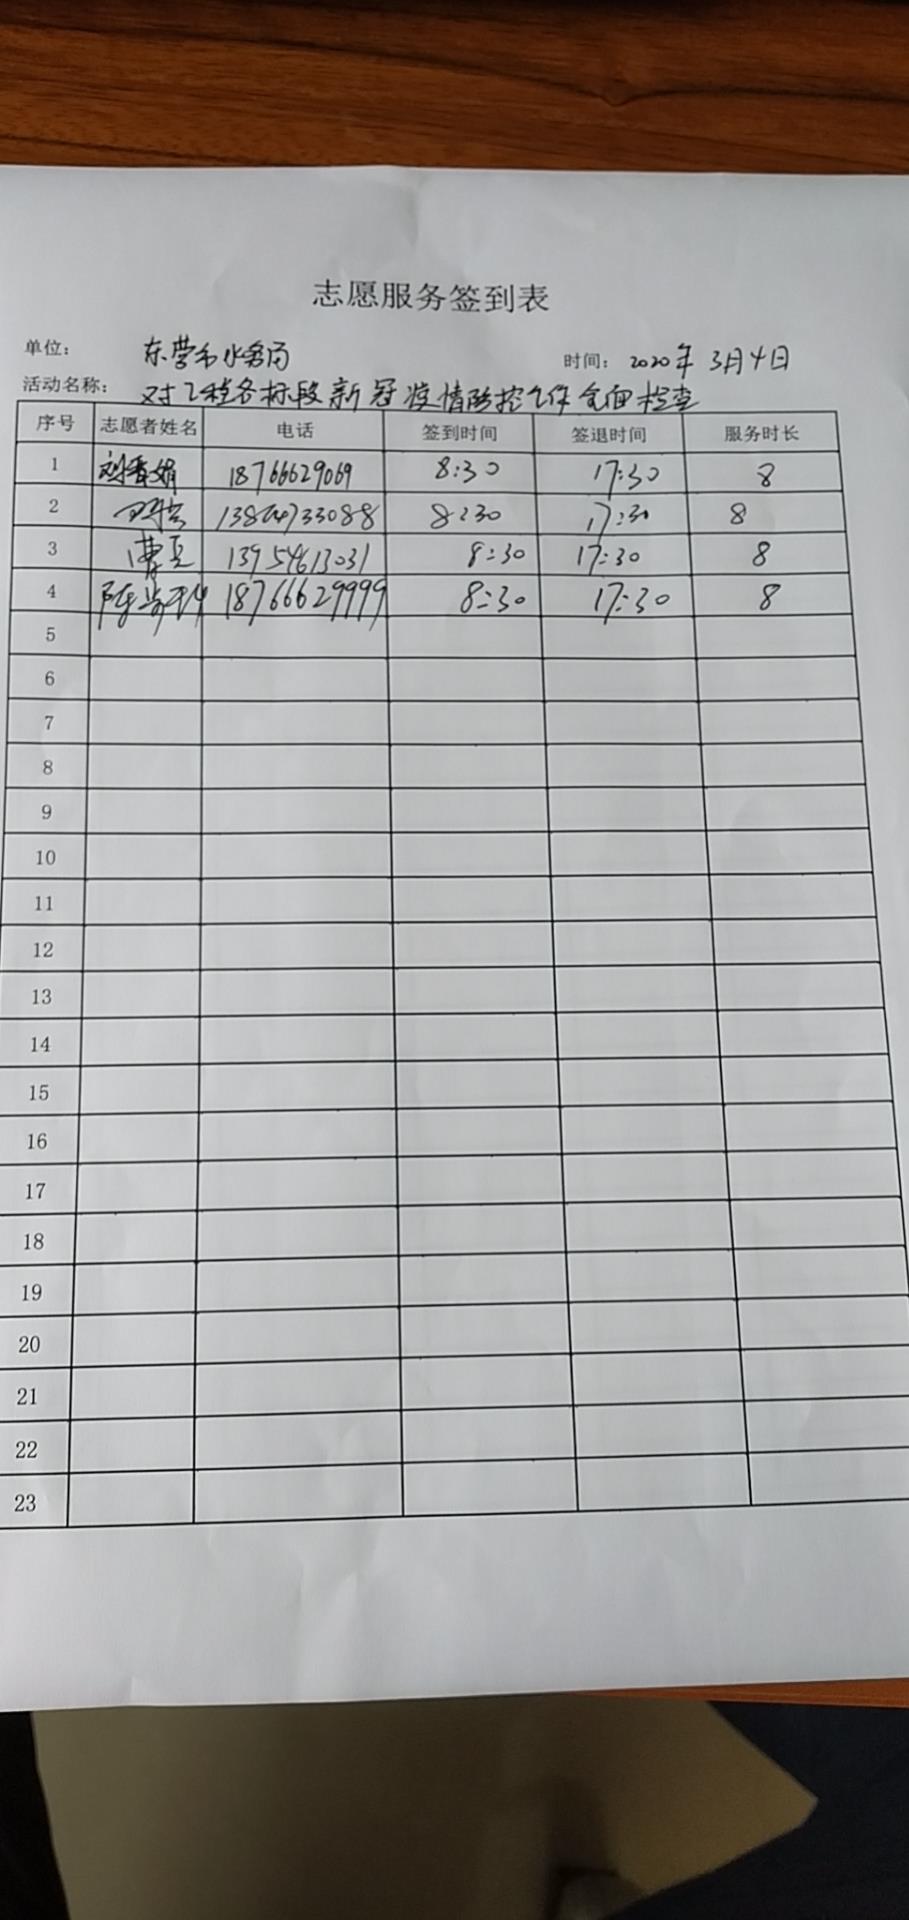 志愿服务签到表
单位： 东营市水务局 时间： 2020年3月4日
活动名称： 对工程各标段新冠疫情防控工作全面检查
序号 志愿者姓名 电话 签到时间 签退时间 服务时长
1 刘香娟 18766629069 8:30 17:30 8
2 8:30 17:30 8
3 曹亮 13954613031 8:30 17:30 8
4 18766629999 8:30 17:30 8
5
6
7
8
9
10
11
12
13
14
15
16
17
18
19
20
21
22
23